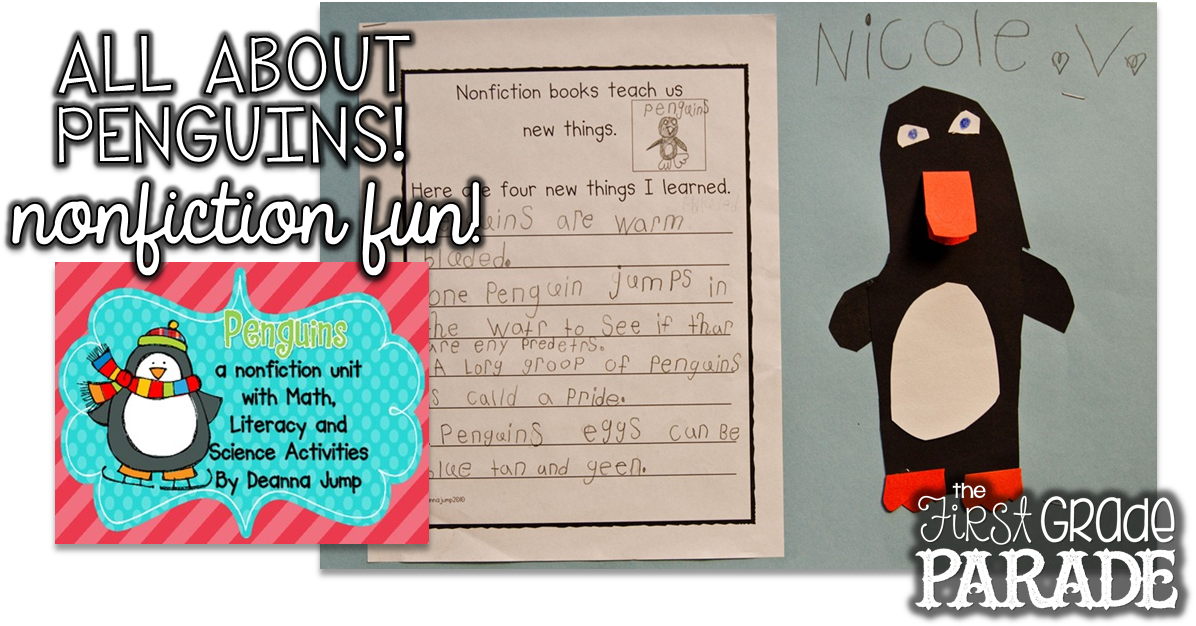 ALL ABOUT
PENGUINS!
nonfiction fun!
Penguins
a nonfiction unit
with Math,
Literacy and
Science Activities
By Deanna Jump
Nonfiction books teach us
new things.
penguins
Here are four new things I learned.
are warm
bladed.
one Penguin jumps in
the watr to See if thar
are eny Predetrs.
A Lorg groop of Penguins
is calld a Pride.
Penguins eggs can Be
blue tan and geen.
Nicole V.
the
First Grade
PARADE